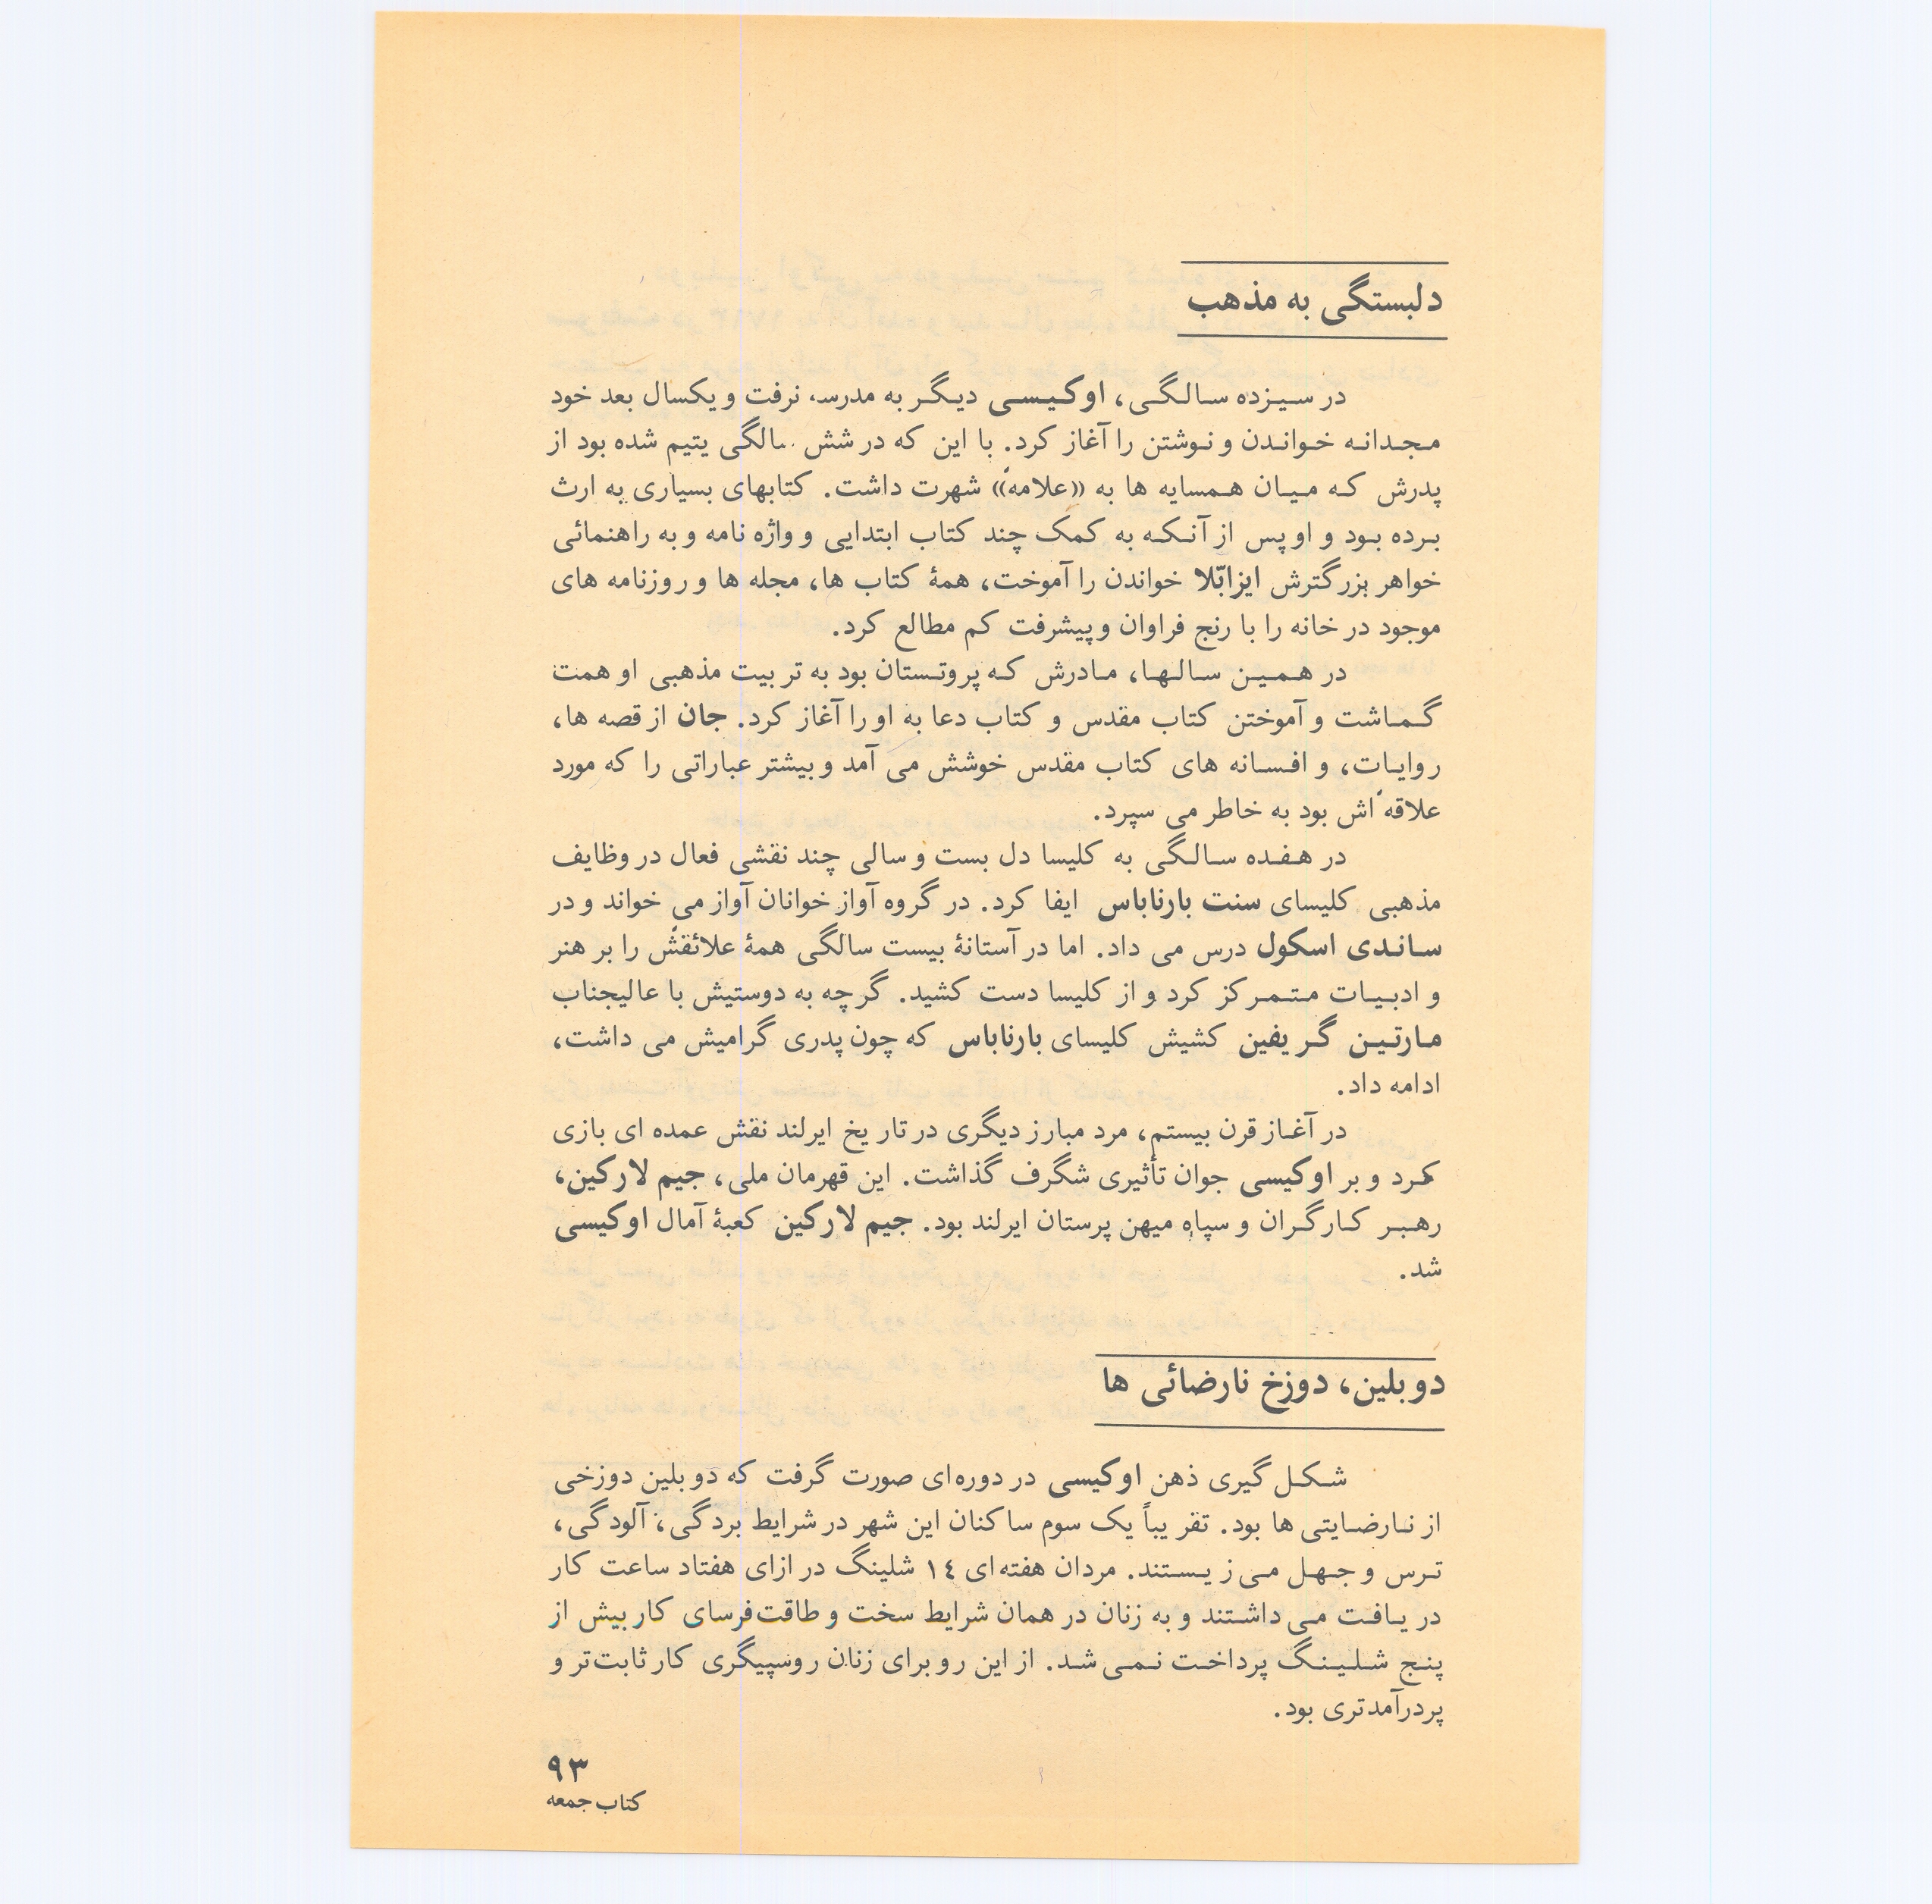 دلبستگی به مذهب
در سیزده سالگی، اوکیسی دیگر به مدرسه نرفت و یکسال بعد خود
مجدانه خواندن و نوشتن را آغاز کرد. با این که در شش سالگی یتیم شده بود از
پدرش که میان همسایه ها به «علامه» شهرت داشت. کتابهای بسیاری به ارث
برده بود و او پس از آنکه به کمک چند کتاب ابتدایی و واژه نامه و به راهنمائی
خواهر بزرگترش ایزابّلا خواندن را آموخت، همهٔ کتاب ها، مجله ها و روزنامه های
موجود در خانه را با رنج فراوان و پیشرفت کم مطالع کرد.
در همین سالها، مادرش که پروتستان بود به تربیت مذهبی او همت
گماشت و آموختن کتاب مقدس و کتاب دعا به او را آغاز کرد. جان از قصه ها،
روایات، و افسانه های کتاب مقدس خوشش می آمد و بیشتر عباراتی را که مورد
علاقه اش بود به خاطر می سپرد.
در هفده سالگی به کلیسا دل بست و سالی چند نقشی فعال در وظایف
مذهبی کلیسای سنت بارناباس ایفا کرد. در گروه آواز خوانان آواز می خواند و در
ساندی اسکول درس می داد. اما در آستانهٔ بیست سالگی همهٔ علائقش را بر هنر
و ادبیات متمرکز کرد و از کلیسا دست کشید. گرچه به دوستیش با عالیجناب
مارتین گریفین کشیش کلیسای بارناباس که چون پدری گرامیش می داشت،
ادامه داد.
در آغاز قرن بیستم، مرد مبارز دیگری در تاریخ ایرلند نقش عمده ای بازی
کرد و بر اوکیسی جوان تأثیری شگرف گذاشت. این قهرمان ملی، جیم لارکین،
رهبر کارگران و سپاه میهن پرستان ایرلند بود. جیم لارکین کعبهٔ آمال اوکیسی
شد.
دوبلین، دوزخ نارضائی ها
شکل گیری ذهن اوکیسی در دوره‌ای صورت گرفت که دوبلین دوزخی
از نارضایتی ها بود. تقریباً یک سوم ساکنان این شهر در شرایط بردگی، آلودگی،
ترس و جهل می‌زیستند. مردان هفته‌ای ۱٤ شلینگ در ازای هفتاد ساعت کار
دریافت می‌داشتند و به زنان در همان شرایط سخت و طاقت‌فرسای کار بیش از
پنج شلینگ پرداخت نمی‌شد. از این رو برای زنان روسپیگری کار ثابت‌تر و
پردرآمدتری بود.
۹۳
کتاب جمعه